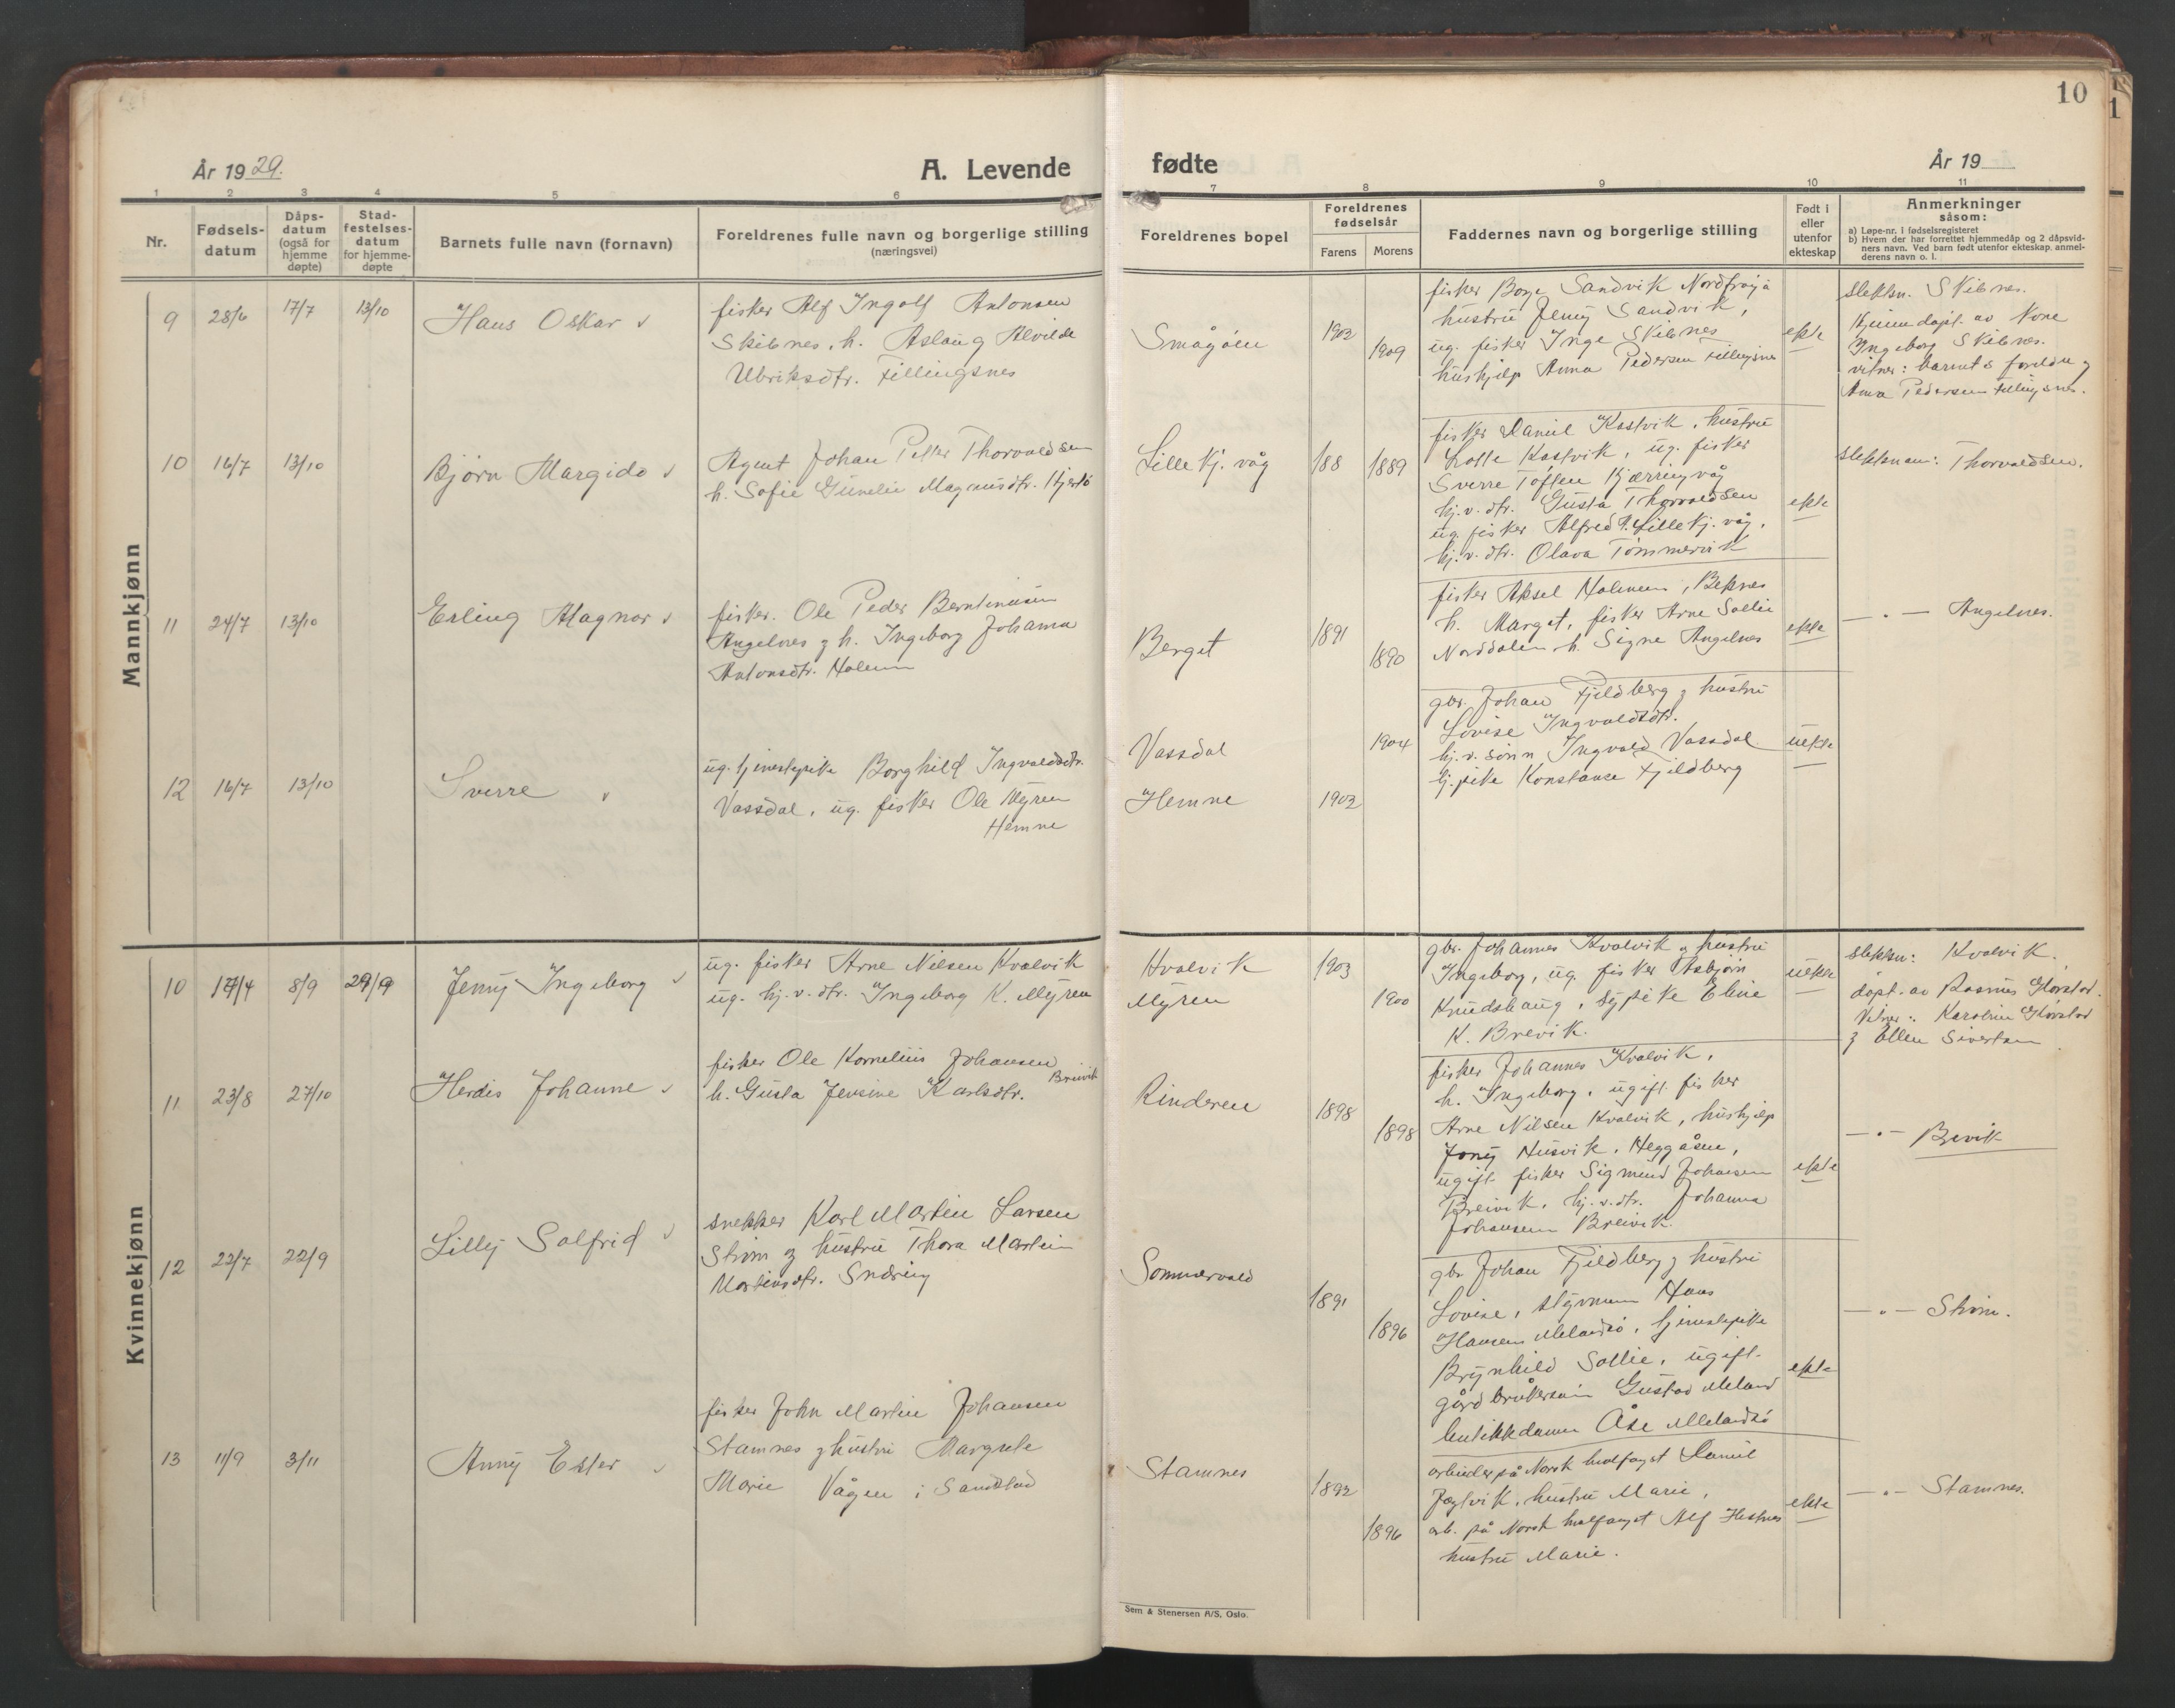 10
År 1929.
A. Levende
fødte
År 19
1 2 3 4 5 6 7 8 9 10 11
Nr.
Fødsels-
datum
Dåps-
datum
(også for
hjemme
døpte)
Stad-
festelses-
datum
for hjemme-
døpte
Barnets fulle navn (fornavn)
Foreldrenes fulle navn og borgerlige stilling
(næringsvei)
Foreldrenes bopel
Foreldrenes
fødselsår
Farens Morens
Faddernes navn og borgerlige stilling
Født i
eller
utenfor
ekteskap
Anmerkninger
såsom:
a) Løpe-nr. i fødselsregisteret
b) Hvem der har forrettet hjemmedåp og 2 dåpsvid-
ners navn. Ved barn født utenfor ekteskap anmel-
derens navn o. l.
Mannkjønn
9 28/6 17/7 13/10 Hans Oskar v
fisker Alf Ingolf Antonsen
Skibnes, h. Aslaug Alvilde
Ulriksdtr. Fillingsnes
Småøien 1902 1909
fisker Borge Sandvik Nordfrøia
hustru Jenny Sandvik,
ug. fisker Inge Skibnes
hushjelp Anna Pedersen Fillingsnes
ekte
slektsn. Skibnes.
Hjemmedøpt av Kone
Ingeborg Skibnes.
vitner: barnets foreldre og
Anna Pedersen Fillingsnes.
10 16/7 13/10 Bjørn Margido v
Agent Johan Petter Thorvaldsen
h. Sofie Gunelie Magnusdtr. Hjertø
Lille Kj. våg 188 1889
fisker Daniel Kastvik, hustru
Lotte Kastvik, ug. fisker
Sverre Toften Kjærringvåg
hj.v. dtr. Gusta Thorvaldsen
ug. fisker Alfred Lille Kj. våg,
hj.v. dtr. Olava Tømmervik
ekte
slektsnavn: Thorvaldsen.
11 24/7 13/10 Erling Magnar v
fisker. Ole Peder Berntinusen
Angelnes g h. Ingeborg Johanna
Antonsdtr. Holmen
Berget 1891 1890
fisker Aksel Holmen, Beknes
h. Margot, fisker Arne Sollie
Norddalen h. Signe Angelnes
ekte
— " — Angelnes.
12 16/7 13/10 Sverre v
ug. tjenestepike Borghild Ingvaldsdtr.
Vassdal, ug. fisker Ole Myren
Hemne
Vassdal 1904
Hemne 1902
gbr. Johan Fjeldberg g hustru
Lovise Ingvaldsdtr.
hj.v. sønn Ingvald Vassdal
tj. pike Konstanse Fjeldberg
uekte
Kvinnekjønn
10 17/4 8/9 29/9 Jenny Ingeborg v
ug. fisker Arne Nilsen Kvalvik
ug. hj.v. dtr. Ingeborg K. Myren
Kvalvik 1903
Myren 1900
gbr. Johannes Kvalvik g hustru
Ingeborg, ug. fisker Asbjørn
Knudshaug, sypike Eline
K. Brevik.
uekte
slektsn: Kvalvik.
døpt av Rasmus Glørstad.
Vitner: Karoline Glørstad
g Ellen Sivertsen
11 23/8 27/10 Herdis Johanne v
fisker Ole Kornelius Johansen
Breivik
h. Gusta Jensine Karlsdtr.
Rinderen 1898 1898
fisker Johannes Kvalvik,
h. Ingeborg, ugift fisker
Arne Nilsen Kvalvik, hushjelp
Jony Husvik, Heggåsen,
ugift fisker Sigmund Johansen
Breivik, hj.v. dtr. Johanna
Johansen Breivik.
ekte
— " — Brevik
12 22/7 22/9 Lilly Solfrid v
snekker Karl Martin Larsen
Strøm og hustru Thora Martin
Martinsdtr. Snæring
Sommervold 1891 1896
gbr Johan Fjeldberg g hustru
Lovise, styrmann Hans
Hansen Melandsø, tjenestepike
Brynhild Sollie, ugift
gårdbrukersønn Gustav Meland
butikkdame Åse Melandsø
ekte
— " — Strøm.
13 11/9 3/11 Anny Ester v
fisker John Martin Johansen
Stamnes g hustru Margrete
Marie Vågen i Sandstad
Stamnes 1892 1896
arbeider på Norsk hvalfangst Daniel
Jægtvik, hustru Marie,
arb. på Norsk hvalfangst Alf Hestnes
hustru Marie.
ekte
— " — Stamnes.
Sem & Stenersen A/S, Oslo.